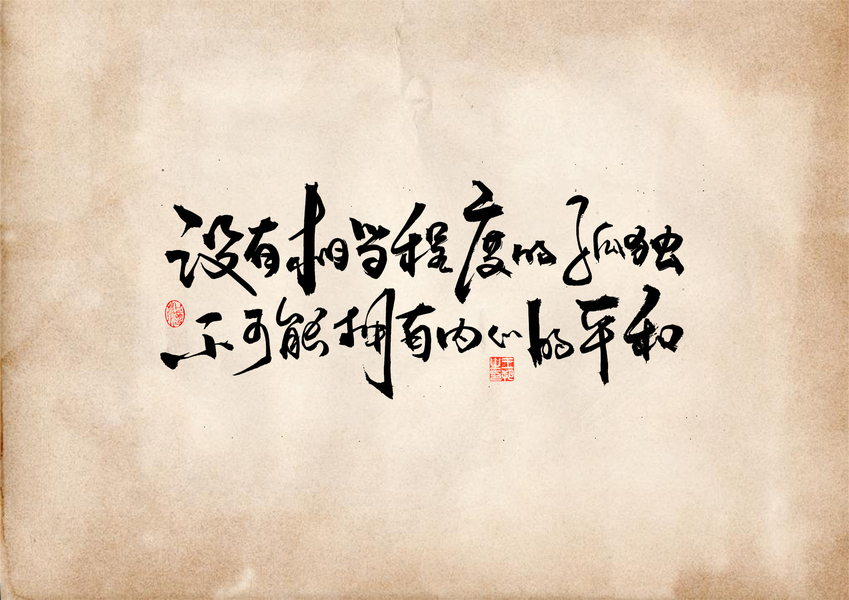 没有相当程度的孤独
不可能拥有内心的平和